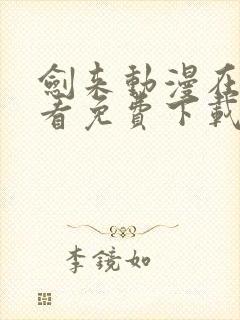 劍来動漫在
看免費下載
李鏡如